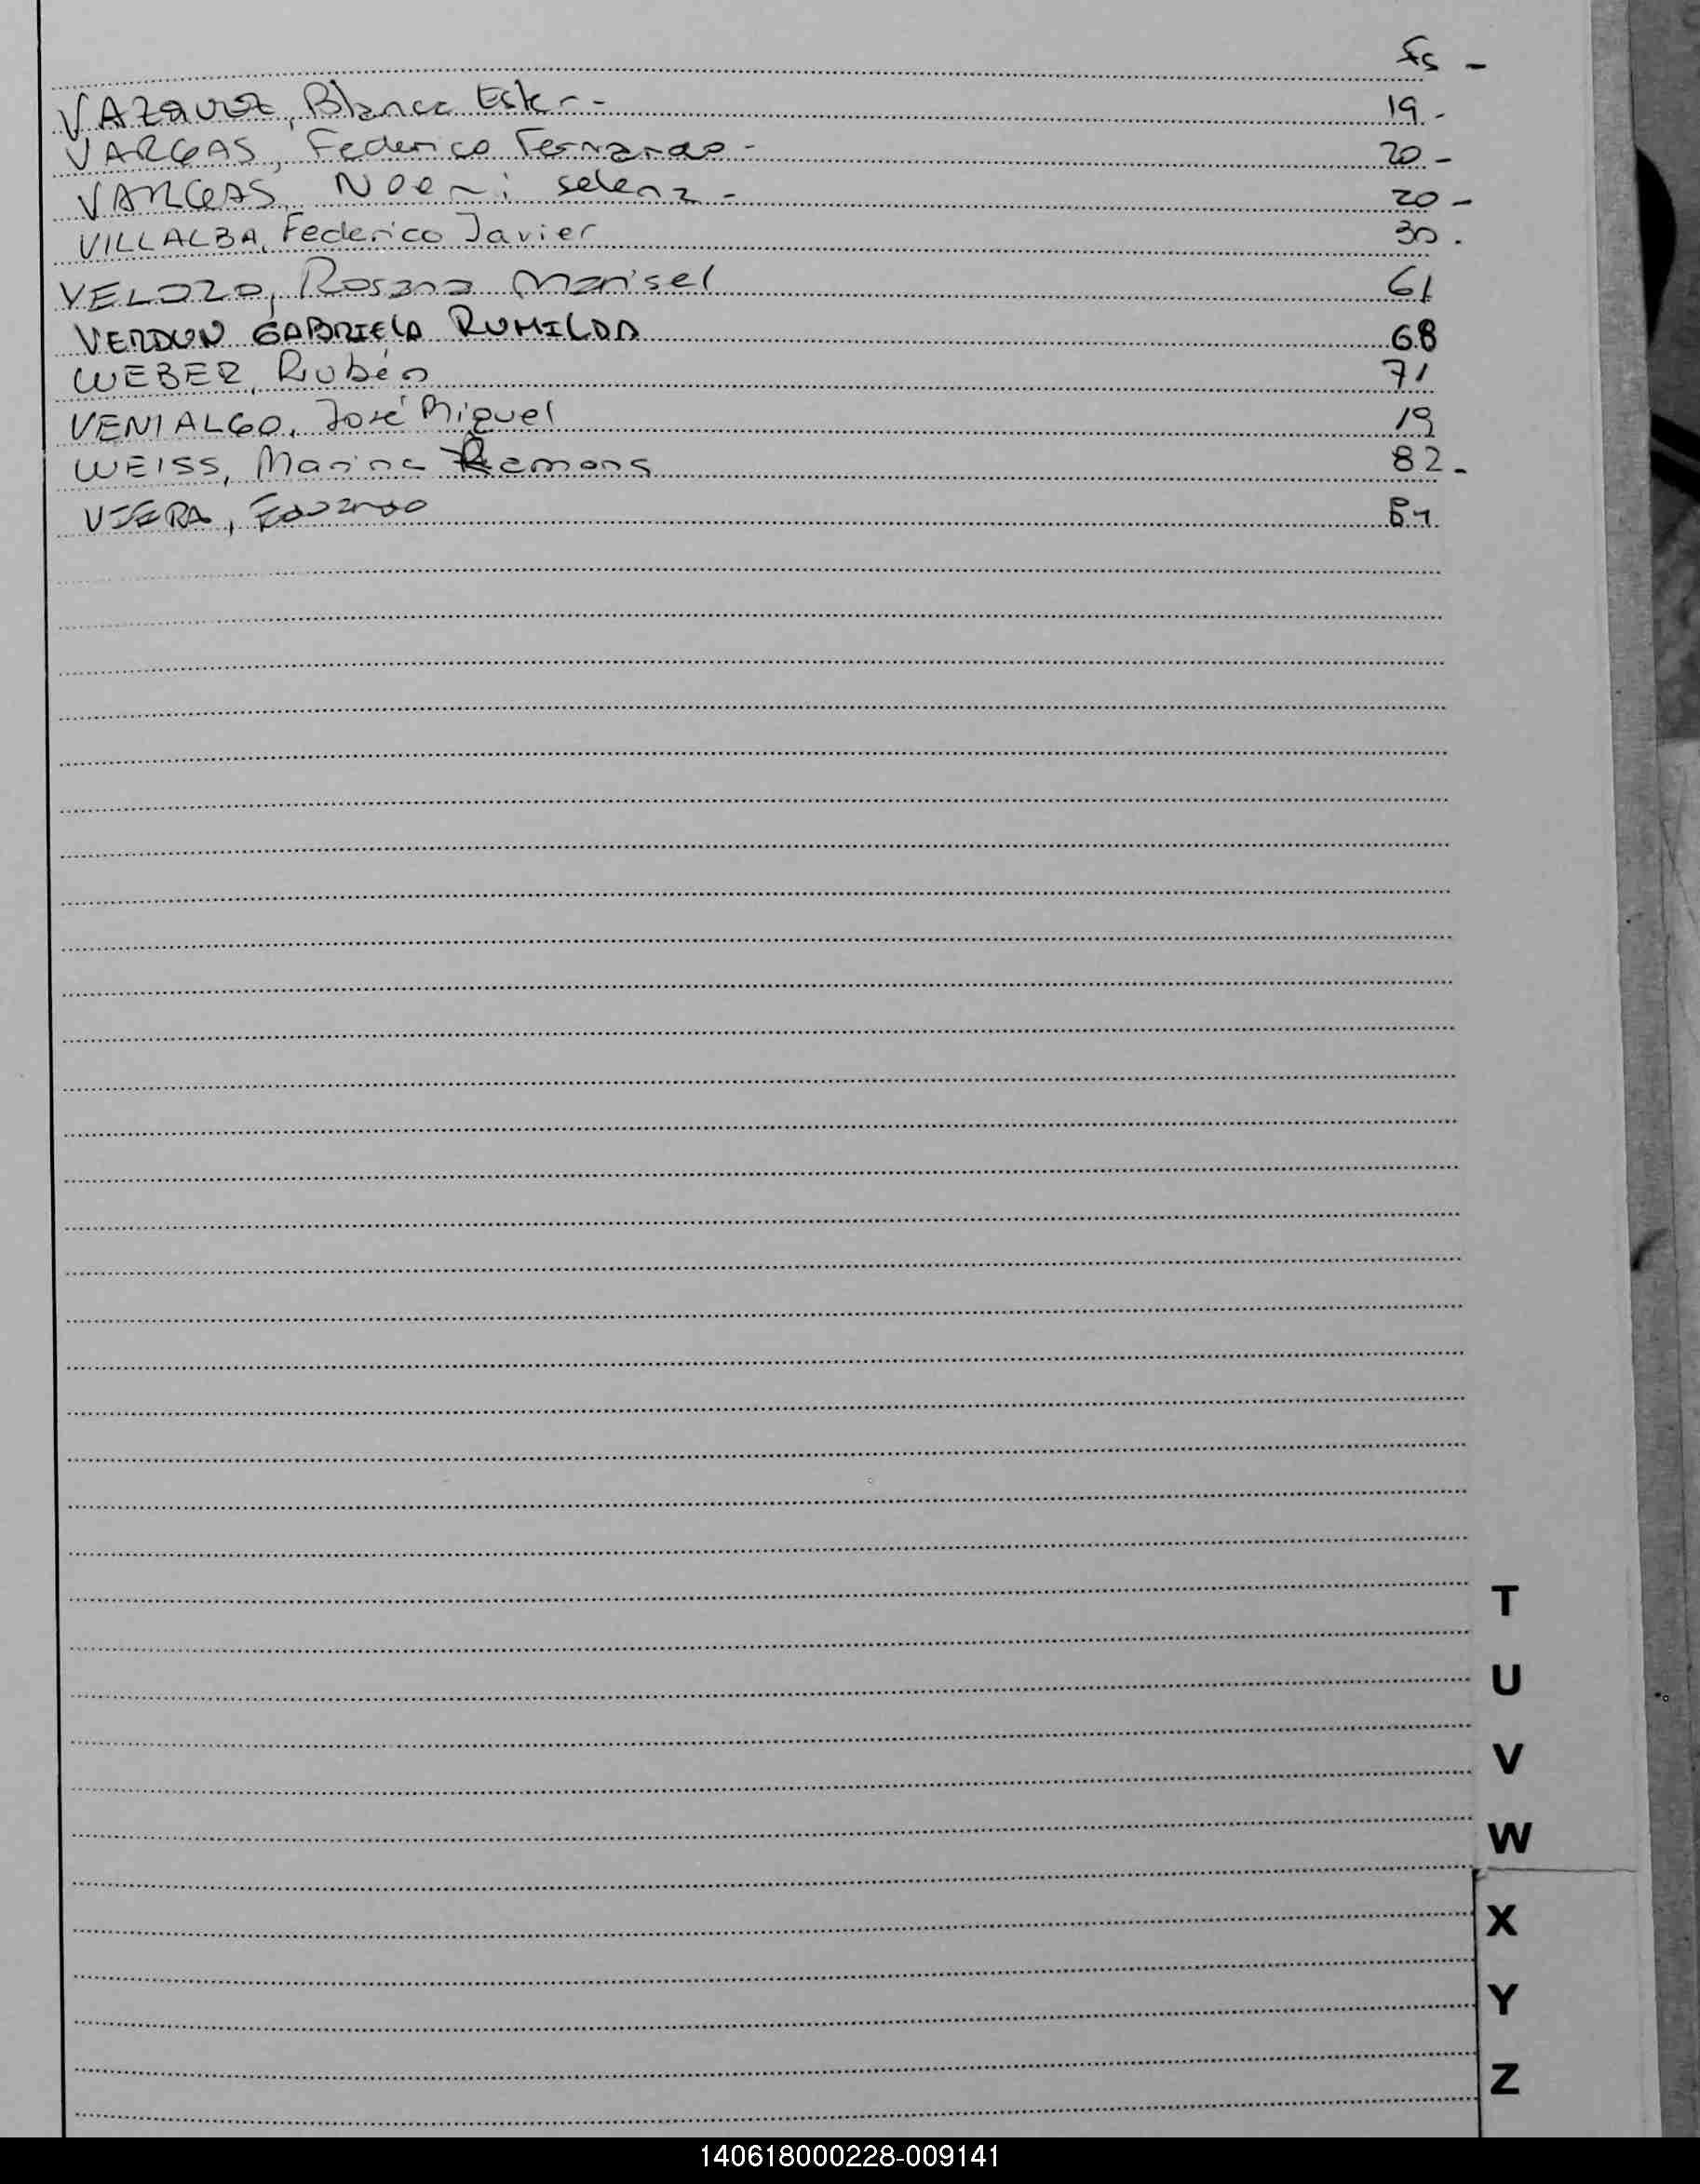 Fs -
VAZQUEZ, Blanca Ester - 19 -
VARGAS, Federico Fernando - 20 -
VARGAS, Noemi Selena - 20 -
VILLALBA, Federico Javier 30.
VELOZO, Rosana Marisel 61
VERDUN GABRIELA RUMILDA 68
WEBER, Rubén 71
VENIALGO, José Miguel 19
WEISS, Marina Ramona 82 -
VIERA, Eduardo
T
U
V
W
X
Y
Z
140618000228-009141